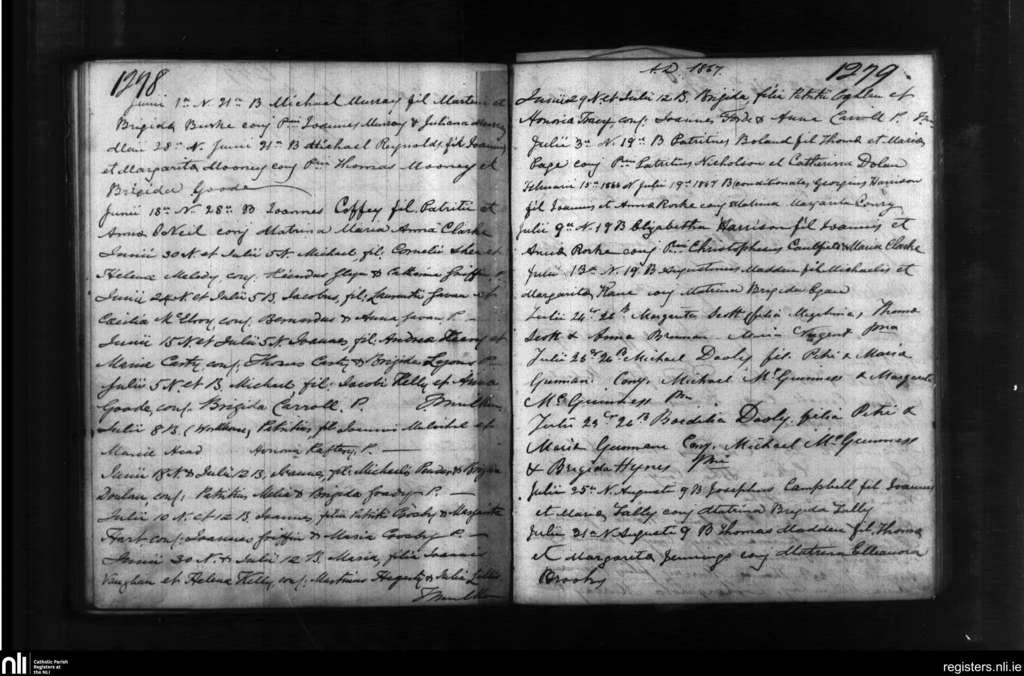 1278
Junii 1st N. 21st B Michael Murray fil Martini et
Brigida Burke conj Prni Joannes Murray & Juliana Murray
Maii 28th N. Junii 21st B Michael Reynolds fil Joannis
et Margarita Mooney conj Prni Thomas Mooney et
Brigida Goode
Junii 18th N. 28th B Joannes Coffey fil Patritii et
Anna O'Neil conj Matrina Maria Anna Clarke
Junii 30 N. et Julii 5 N. Michael, fil: Cornelii Shea et
Helena Melody conj. & Catharina Griffin P.
Junii 24 N et Julii 5 B. Jacobus, fil: Laurentii et
Cecilia McElroy conj. Bernardus & Anna P. —
Junii 15 N. et Julii 5 N Joannes, fil. Andrea et
Maria Casty conj. Thomas Casty & Brigida Lyons P.
Julii 5 N. et B Michael fil: Jacobi Kelly et Anna
Goode, conj. Brigida Carroll. P.
Julii 8 B. Patritius, fil Joannis et
Maria Head Honoria Raftery P. —
Junii 18 N. & Julii 12 B. Joannes, fil: Michaelis & Brigida
Doulan conj: Patritius Melia & Brigida P. —
Julii 10 N. et 12 B. Joannes, Patritii & Margarita
Hart conj. Joannes Griffin & Maria P. —
Junii 30 N. & Julii 12 B. Maria, filia Joannis
Vaughan et Helena Kelly, conj. Martinus Hegarty & Julia
A.D. 1867. 1279.
Junii 29 N. et Julii 12 B. Brigida, filia Patritii et
Honoria Tracy, conj. Joannes Forde & Anna Carroll P.
Julii 3rd N. 19th B Patritius Boland fil Thoma et Maria
Page conj Prni Patritius Nicholson et Catherina Dolan
Februarii 15th 1866 N Julii 19th 1867 B conditionate, Georgius Harrison
fil Joannis et Anna Rorke conj Matrina Margarita Conry
Julii 9th N. 19 B Elizabetha Harrison fil Joannis et
Anna Rorke conj Prni Christopherus Caulfield & Maria Clarke
Julii 13th N. 19th B Augustinus Madden fil Michaelis et
Margarita Kane conj Matrina Brigida Egan
Julii 24th 26th Margarita Scott (filia Thoma
Scott & Anna Brennan. Maria Nugent
Julii 23rd 26th Michael Dooly fil. Petri & Maria
Gunnan. Conj. Michael McGuinness & Margarita
McGuinness Prn
Julii 23rd 26th B Bedelia Dooly. filia Petri &
Maria Gunnan Conj. Michael McGuinness
& Brigida Hynes Prni
Julii 25th N. Augusti 9 B Josephus Campbell fil Joannis
et Maria Lally conj Matrina Brigida Lally
Julii 31 N. Augusti 9 B Thomas Madden fil. Thoma
et Margarita Jennings conj Matrina Elleanora
Brooks
nli Catholic Parish
Registers at
the NLI
registers.nli.ie